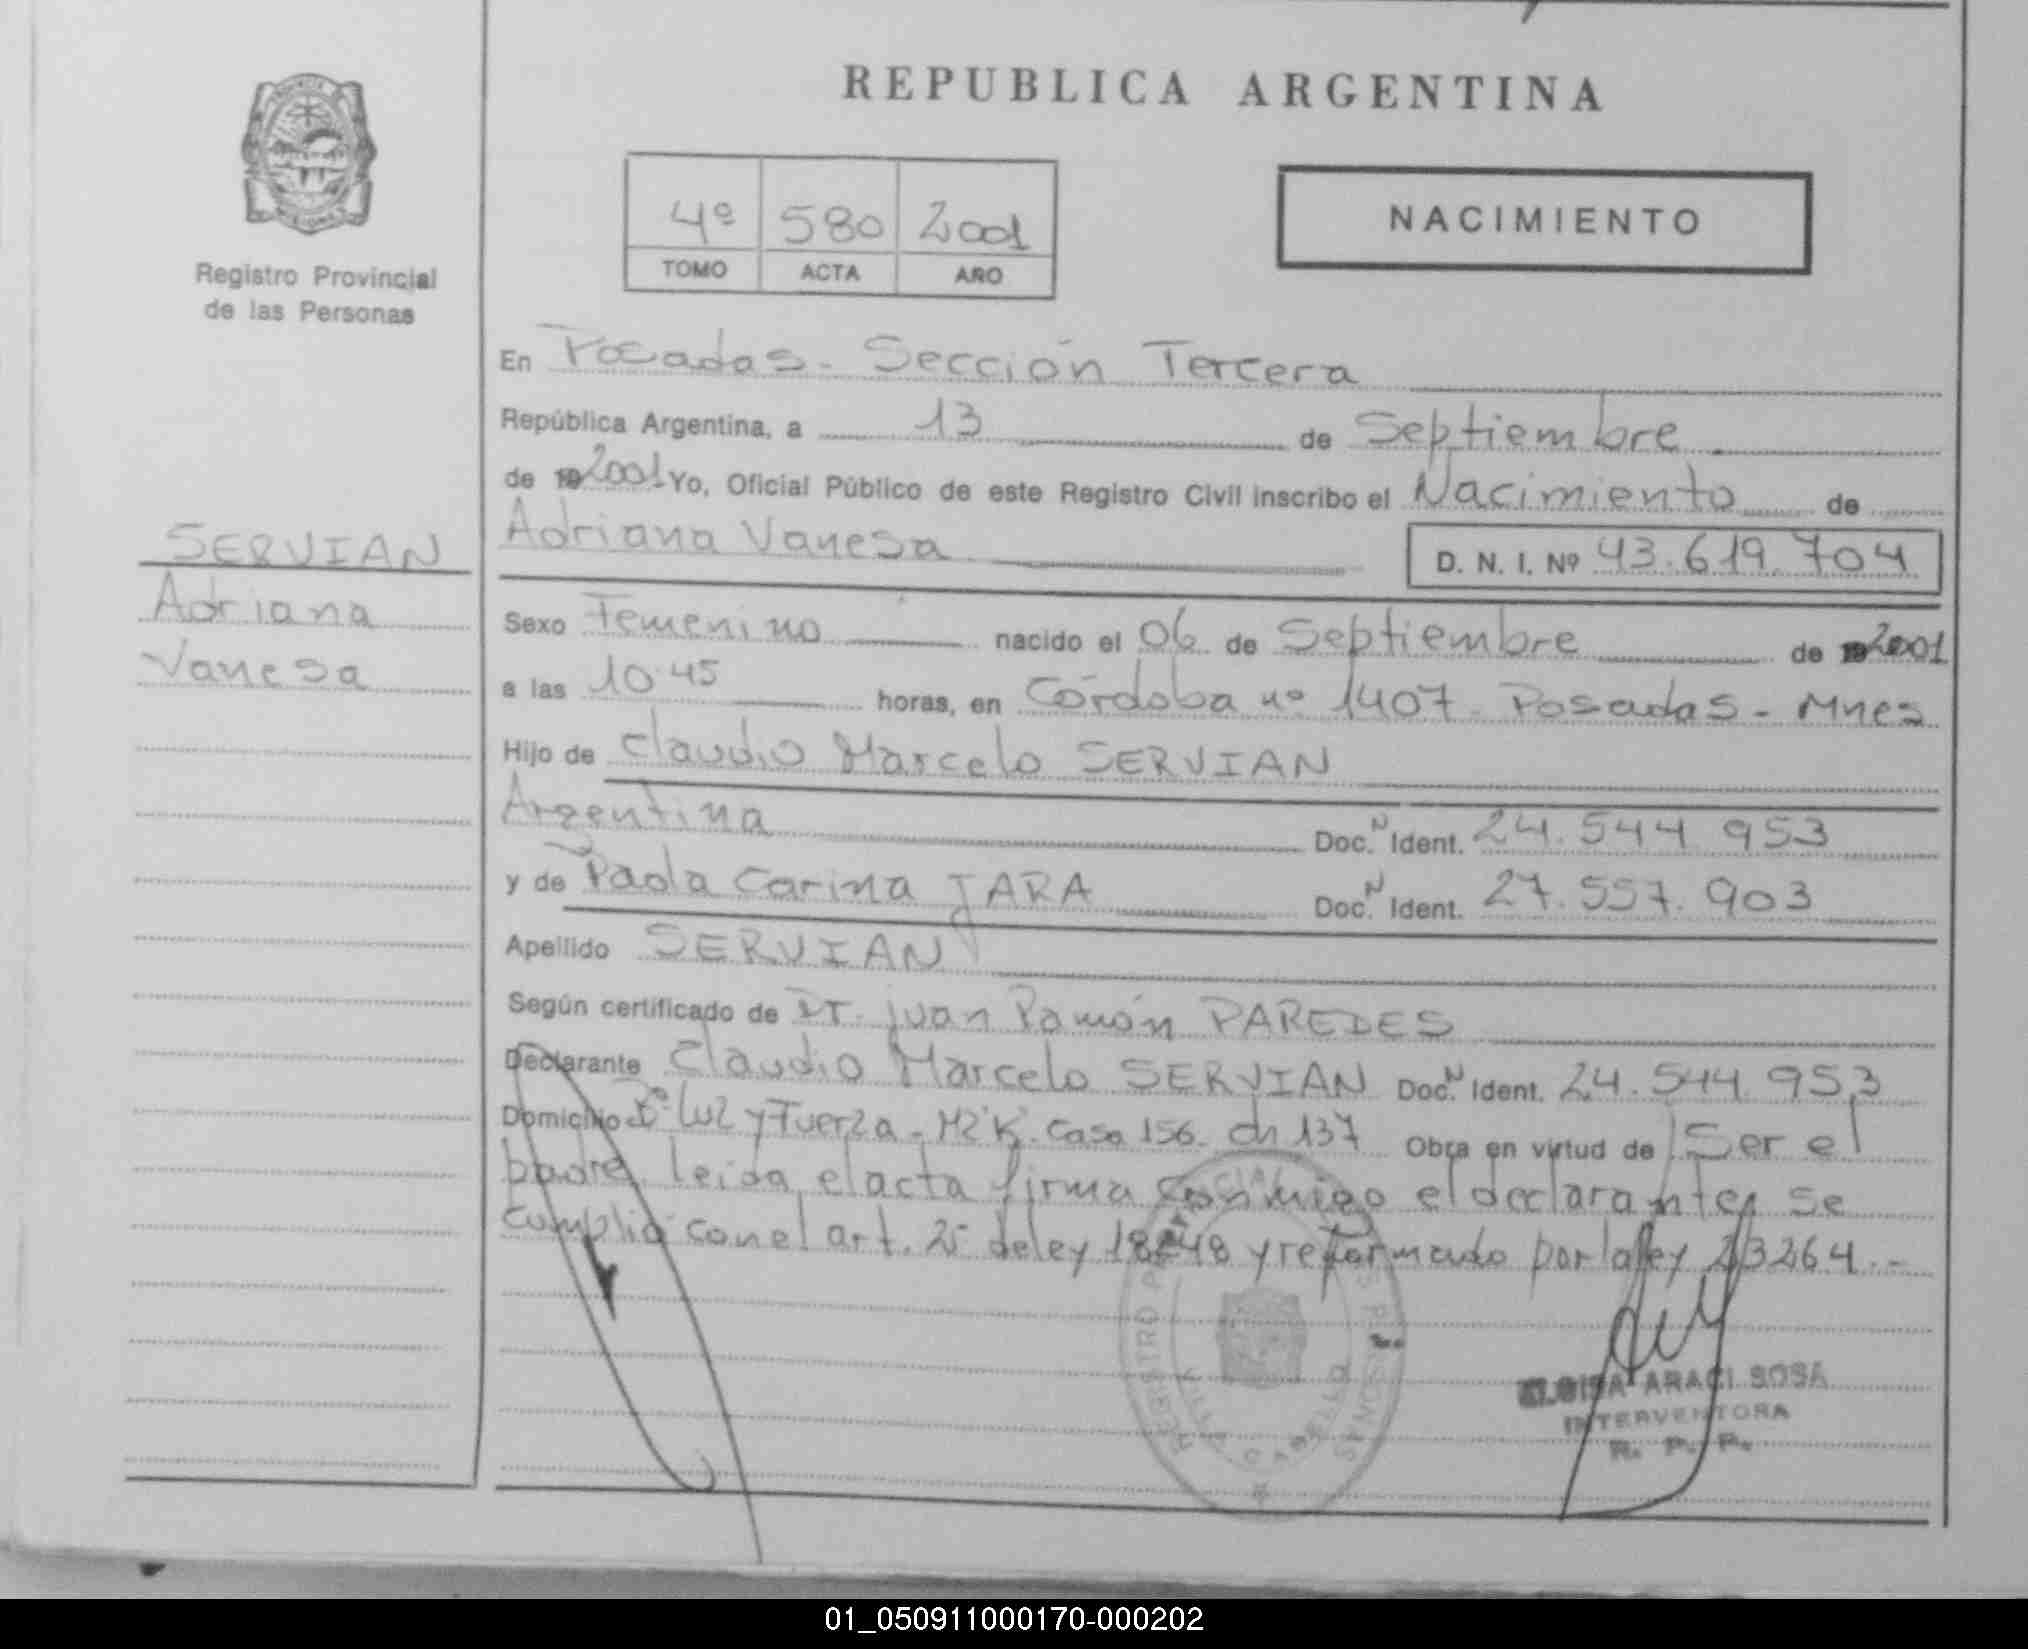 REPUBLICA ARGENTINA
4º 580 2001
TOMO ACTA AÑO
NACIMIENTO
Registro Provincial
de las Personas
En Posadas - Sección Tercera
República Argentina, a 13 de Septiembre
de 19 2001 Yo, Oficial Público de este Registro Civil inscribo el Nacimiento de
Adriana Vanesa D. N. I. Nº 43.619.704
SERVIAN
Adriana
Vanesa
Sexo Femenino nacido el 06 de Septiembre de 2001
a las 10.45 horas, en Córdoba nº 1407 - Posadas - Mnes
Hijo de Claudio Marcelo SERVIAN
Argentina Doc. N Ident. 24.544.953
y de Paola Carina JARA Doc. N Ident. 27.557.903
Apellido SERVIAN
Según certificado de Dr. Juan Ramón PAREDES
Declarante Claudio Marcelo SERVIAN Doc. N Ident. 24.544.953
Domicilio Bº Luz y Fuerza - Mz K. Casa 156. ch 137 Obra en virtud de Ser el
padre, leída el acta firma conmigo el declarante, se
cumplió con el art. 2º de ley 18248 y reformado por la ley 23264.-
REGISTRO PROVINCIAL DE LAS PERSONAS
VILLA CABELLO
ELOISA ARACI SOSA
INTERVENTORA
R. P. P.
01_050911000170-000202